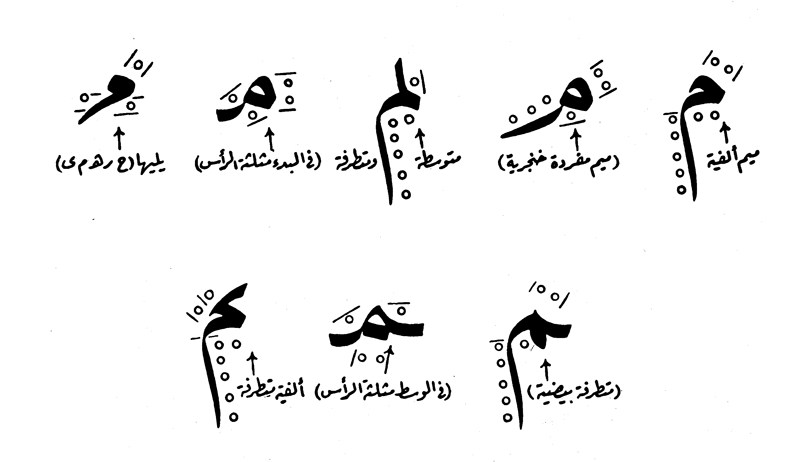 م م لم مـ مـ
ميم ألفية (ميم مفردة خنجرية) متوسطة ومتطرفة (في البدء مثلثة الرأس) يليها (ح ر ه م ى)
ـم ـمـ ـم
(متطرفة بيضية) (في الوسط مثلثة الرأس) ألفية متطرفة